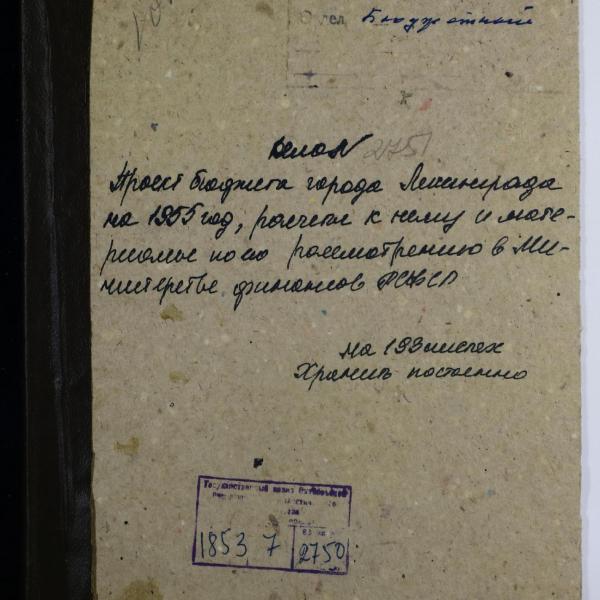 Отдел Бюджетный
дело N 2751
Проект бюджета города Ленинграда
на 1955 год, расчеты к нему и мате-
риалы по его рассмотрению в Ми-
нистерстве финансов РСФСР
на 193 листах
Хранить постоянно
Государственный архив Октябрьской
1853 7 2750